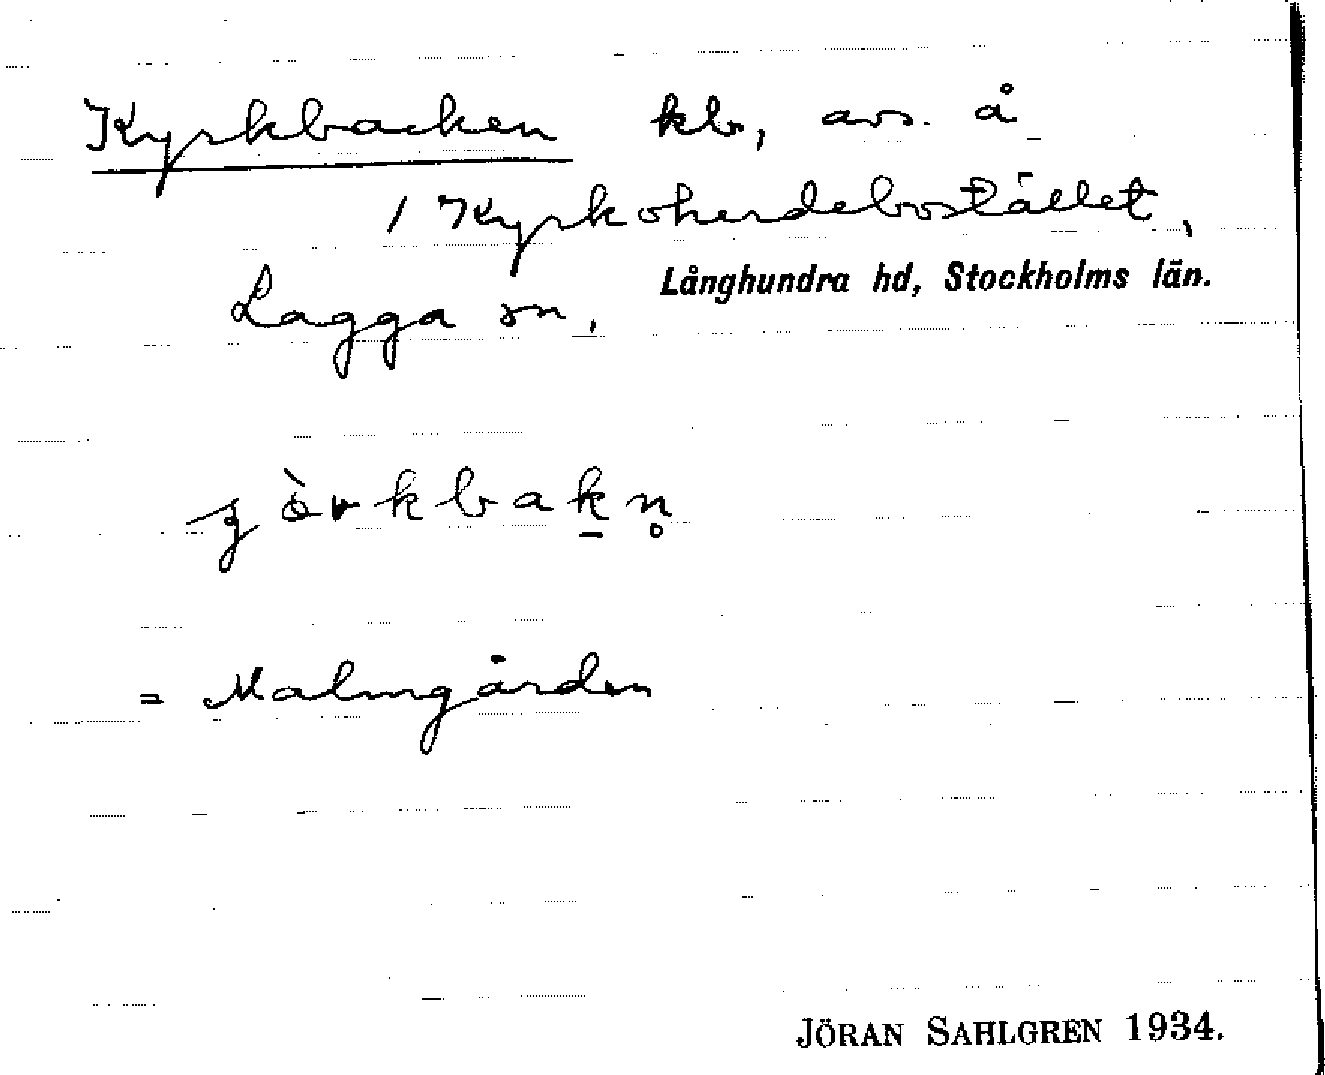 Kyrkbacken kb, avs. å
1 Kyrkoherdebostället,
Lagga sn, Långhundra hd, Stockholms län.
= Malmgården
JÖRAN SAHLGREN 1934.